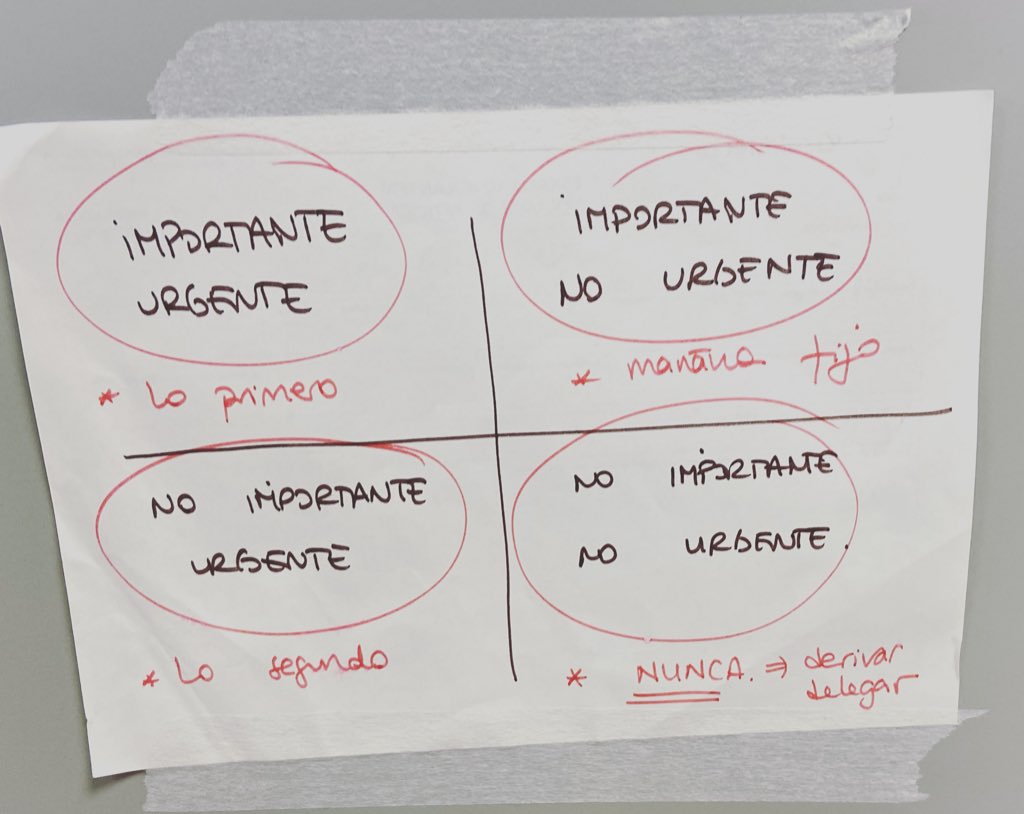 IMPORTANTE
URGENTE
* Lo primero
IMPORTANTE
NO URGENTE
* mañana fijo
NO IMPORTANTE
URGENTE
* Lo segundo
NO IMPORTANTE
NO URGENTE.
* NUNCA. ⇒ derivar
delegar